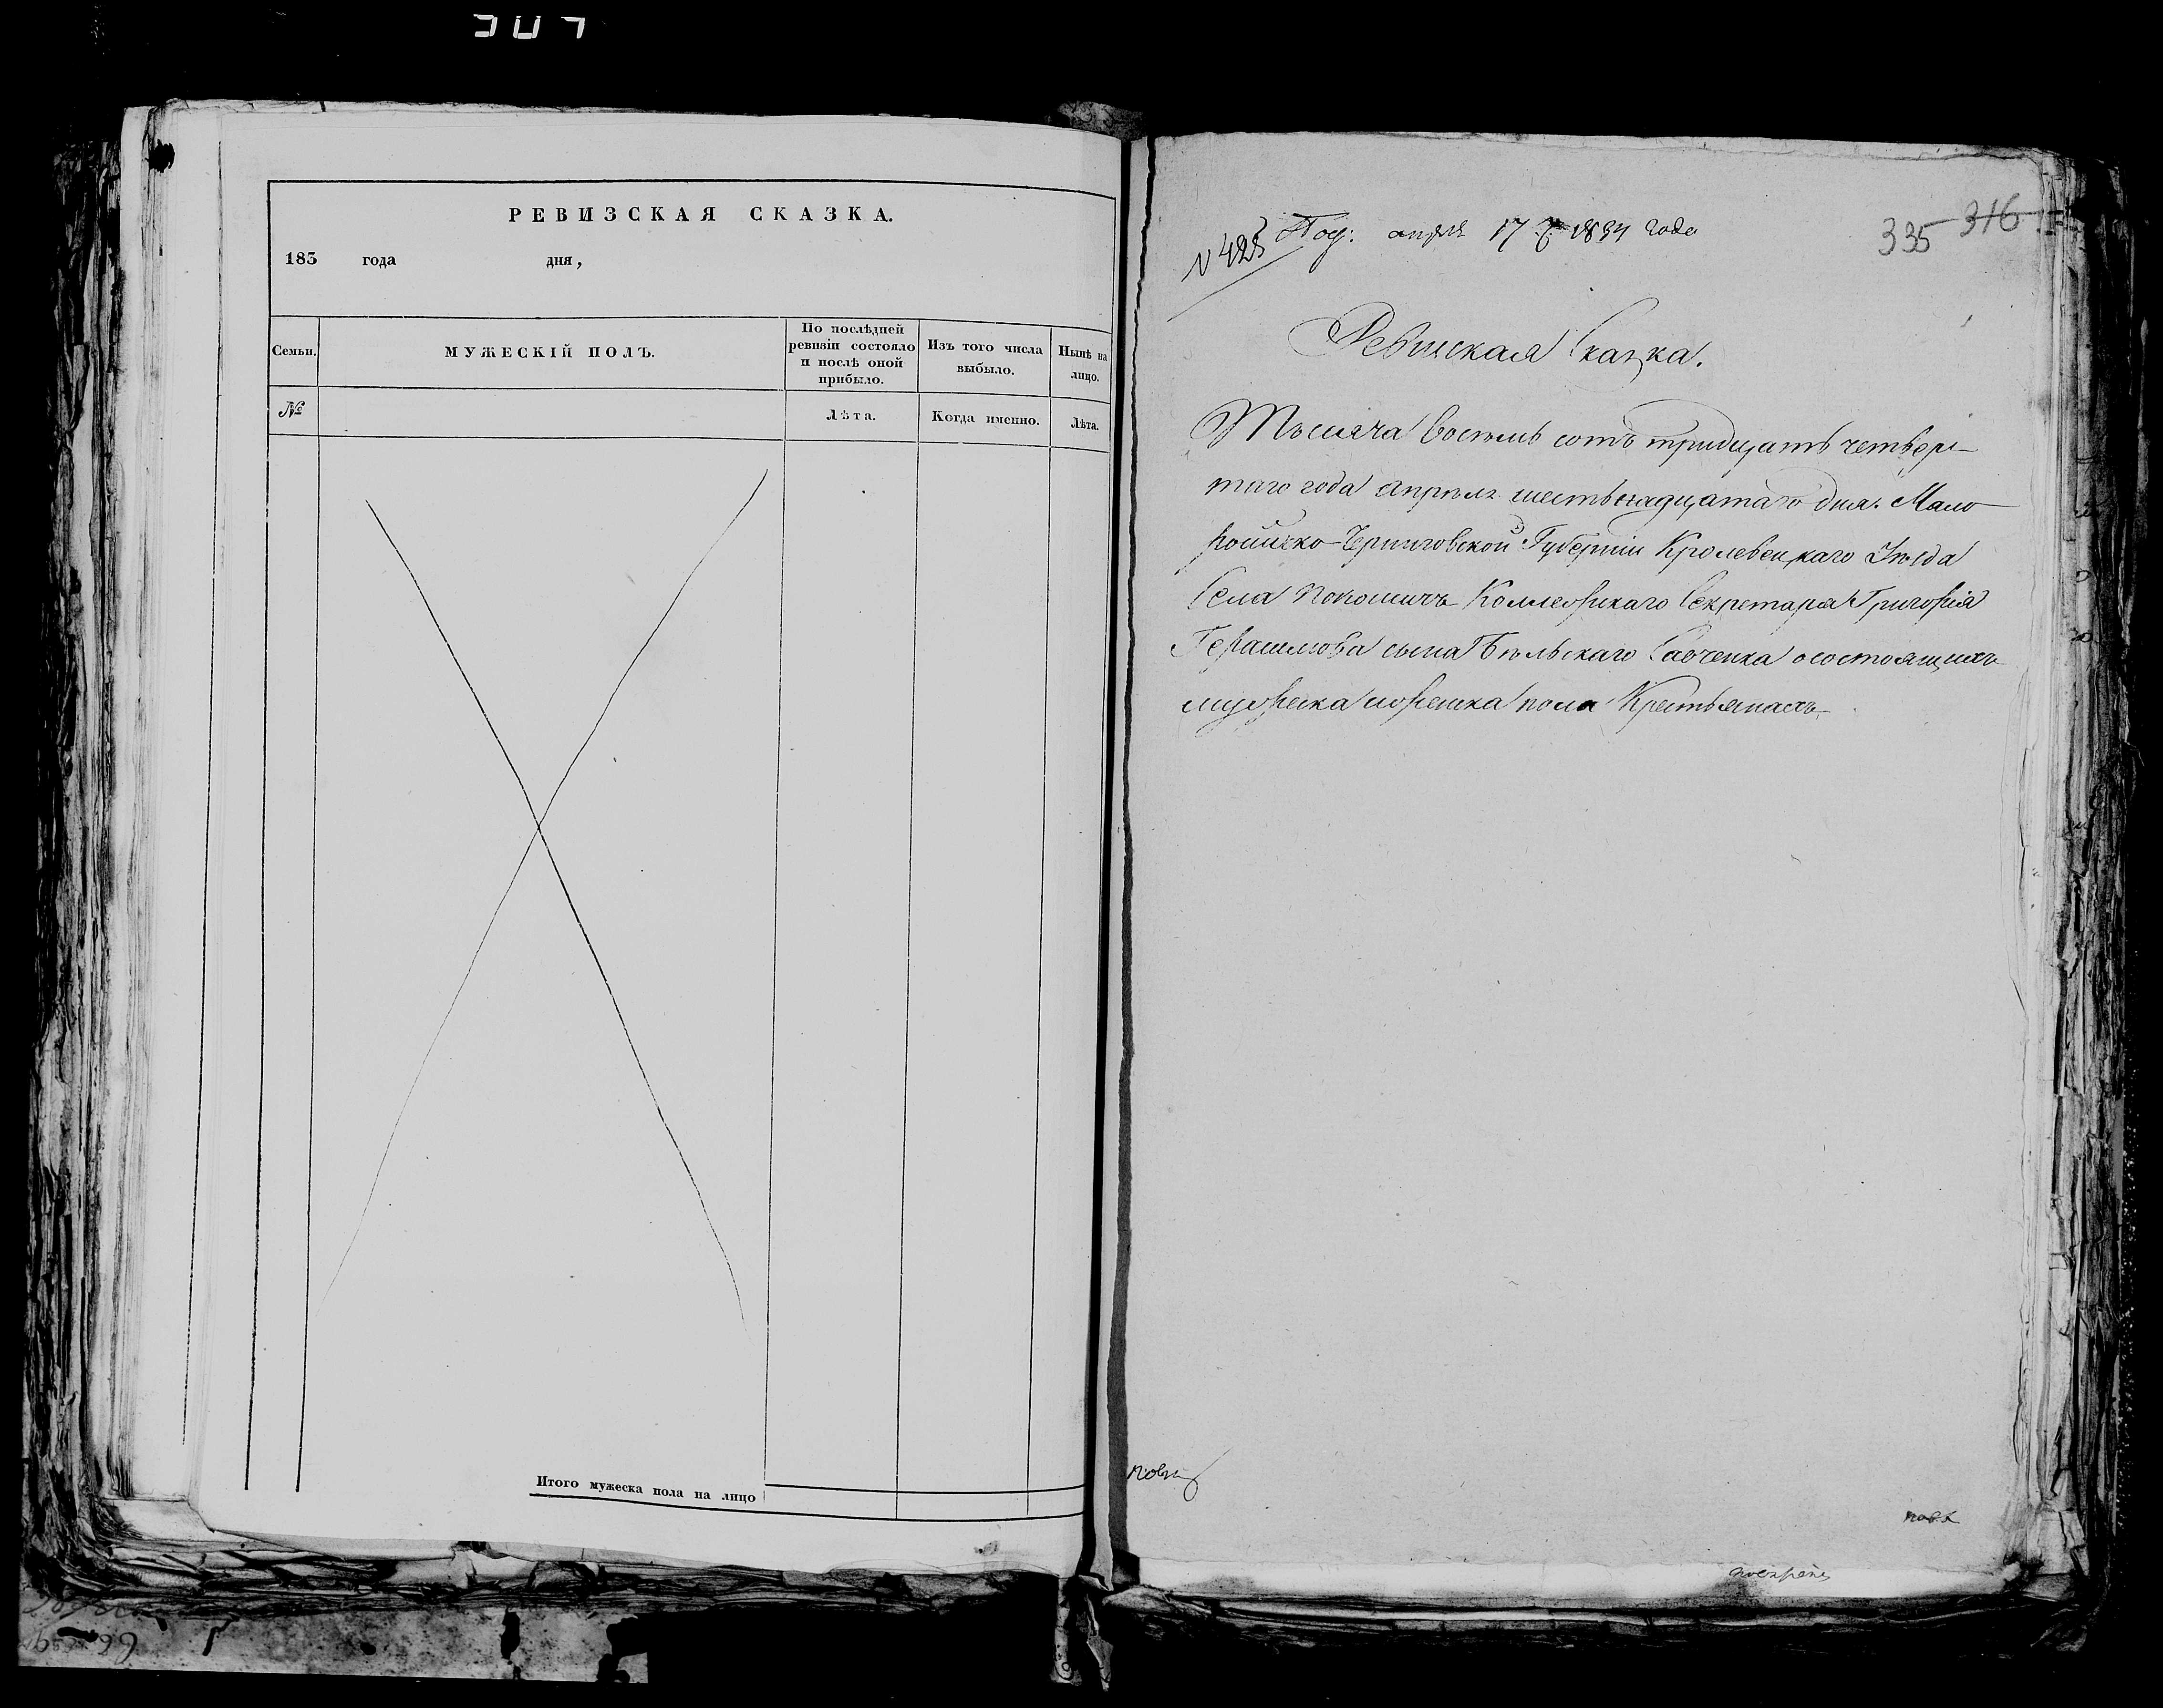 РЕВИЗСКАЯ СКАЗКА.
183 года дня,
Семьи.
МУЖЕСКІЙ ПОЛЪ.
По послѣдней
ревизіи состояло
и послѣ оной
прибыло.
Изъ того числа
выбыло.
Нынѣ на
лицо.
№
Лѣта.
Когда именно.
Лѣта.
Итого мужеска пола на лицо
N 425 Под: апреля 17 д. 1834 года
335 316
Ревиская Сказка.
Тысяча восемь сотъ тридцать четвер-
таго года апреля шестьнадцатаго дня. Мало
російско-Черниговской Губерніи Кролевецкаго Уѣзда
Села Покошичъ Коллежскаго Секретаря Григорія
Герасимова сына Бѣльскаго Савченка о состоящихъ
мужеска и женска пола Крестьянахъ